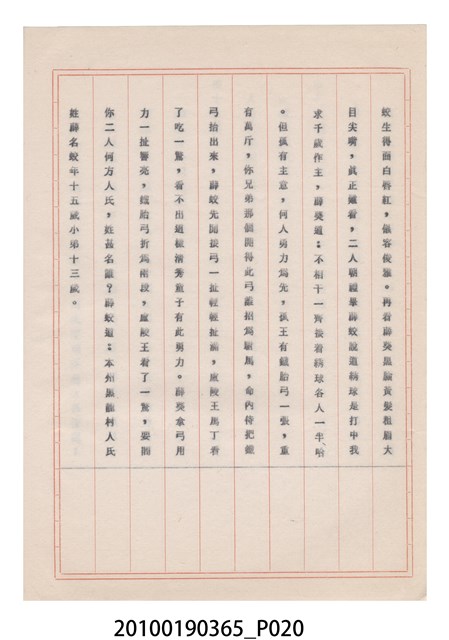 蛟生得面白唇紅，儀容俊雅。再看薛葵黑臉黃髮粗眉大
目尖嘴，眞正難看，二人朝禮畢薛蛟說道綉球是打中我
求千歲作主，薛葵道：不相干一齊接着綉球各人一半、哈
。但孤有主意，何人勇力爲先，孤王有鐵胎弓一張，重
有萬斤，你兄弟那個開得此弓爲駙馬，命內侍把鐵
弓抬出來，薛蛟先開接弓一扯輕輕扯滿，廬陵王馬丁看
了吃一驚，看不出這樣清秀童子有此勇力。薛葵拿弓用
力一扯響亮，鐵胎弓折爲兩段，廬陵王看了一驚，
你二人何方人氏，姓甚名誰？薛蛟道：本州黑龍村人氏
姓薛名蛟年十五歲小弟十三歲。
20100190365_P020